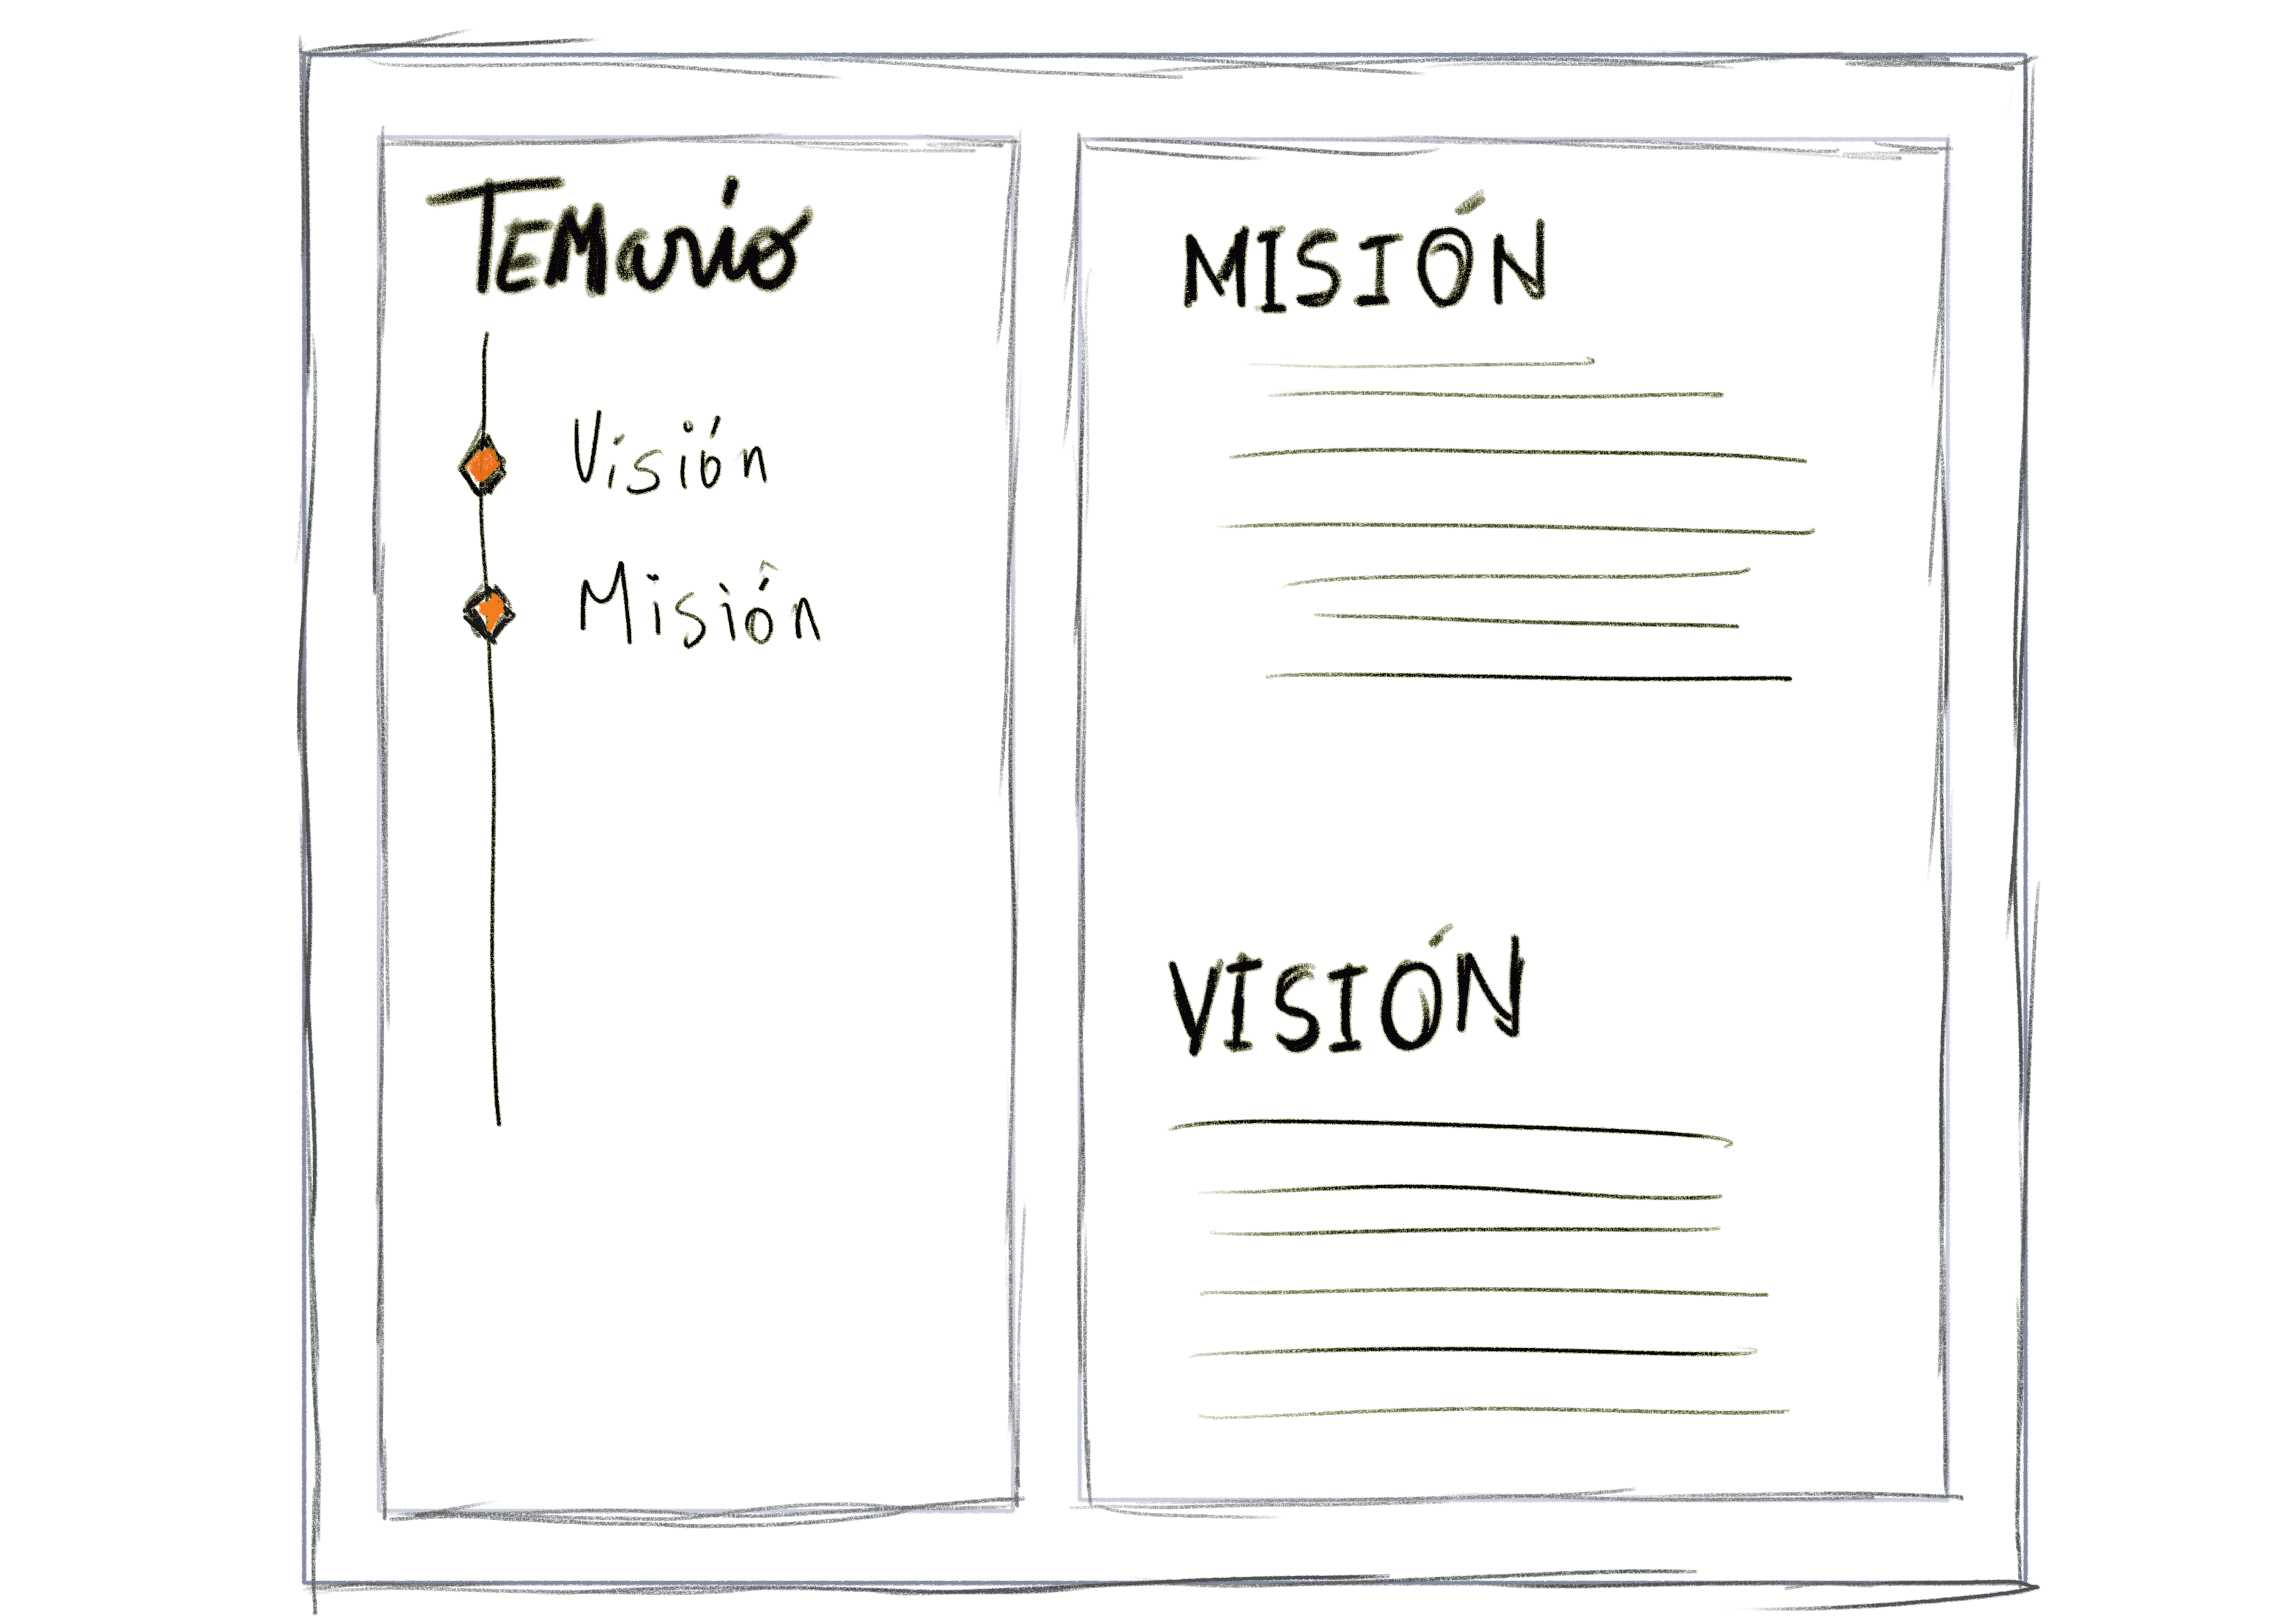 TEMario
Visión
Misión
MISIÓN
VISIÓN